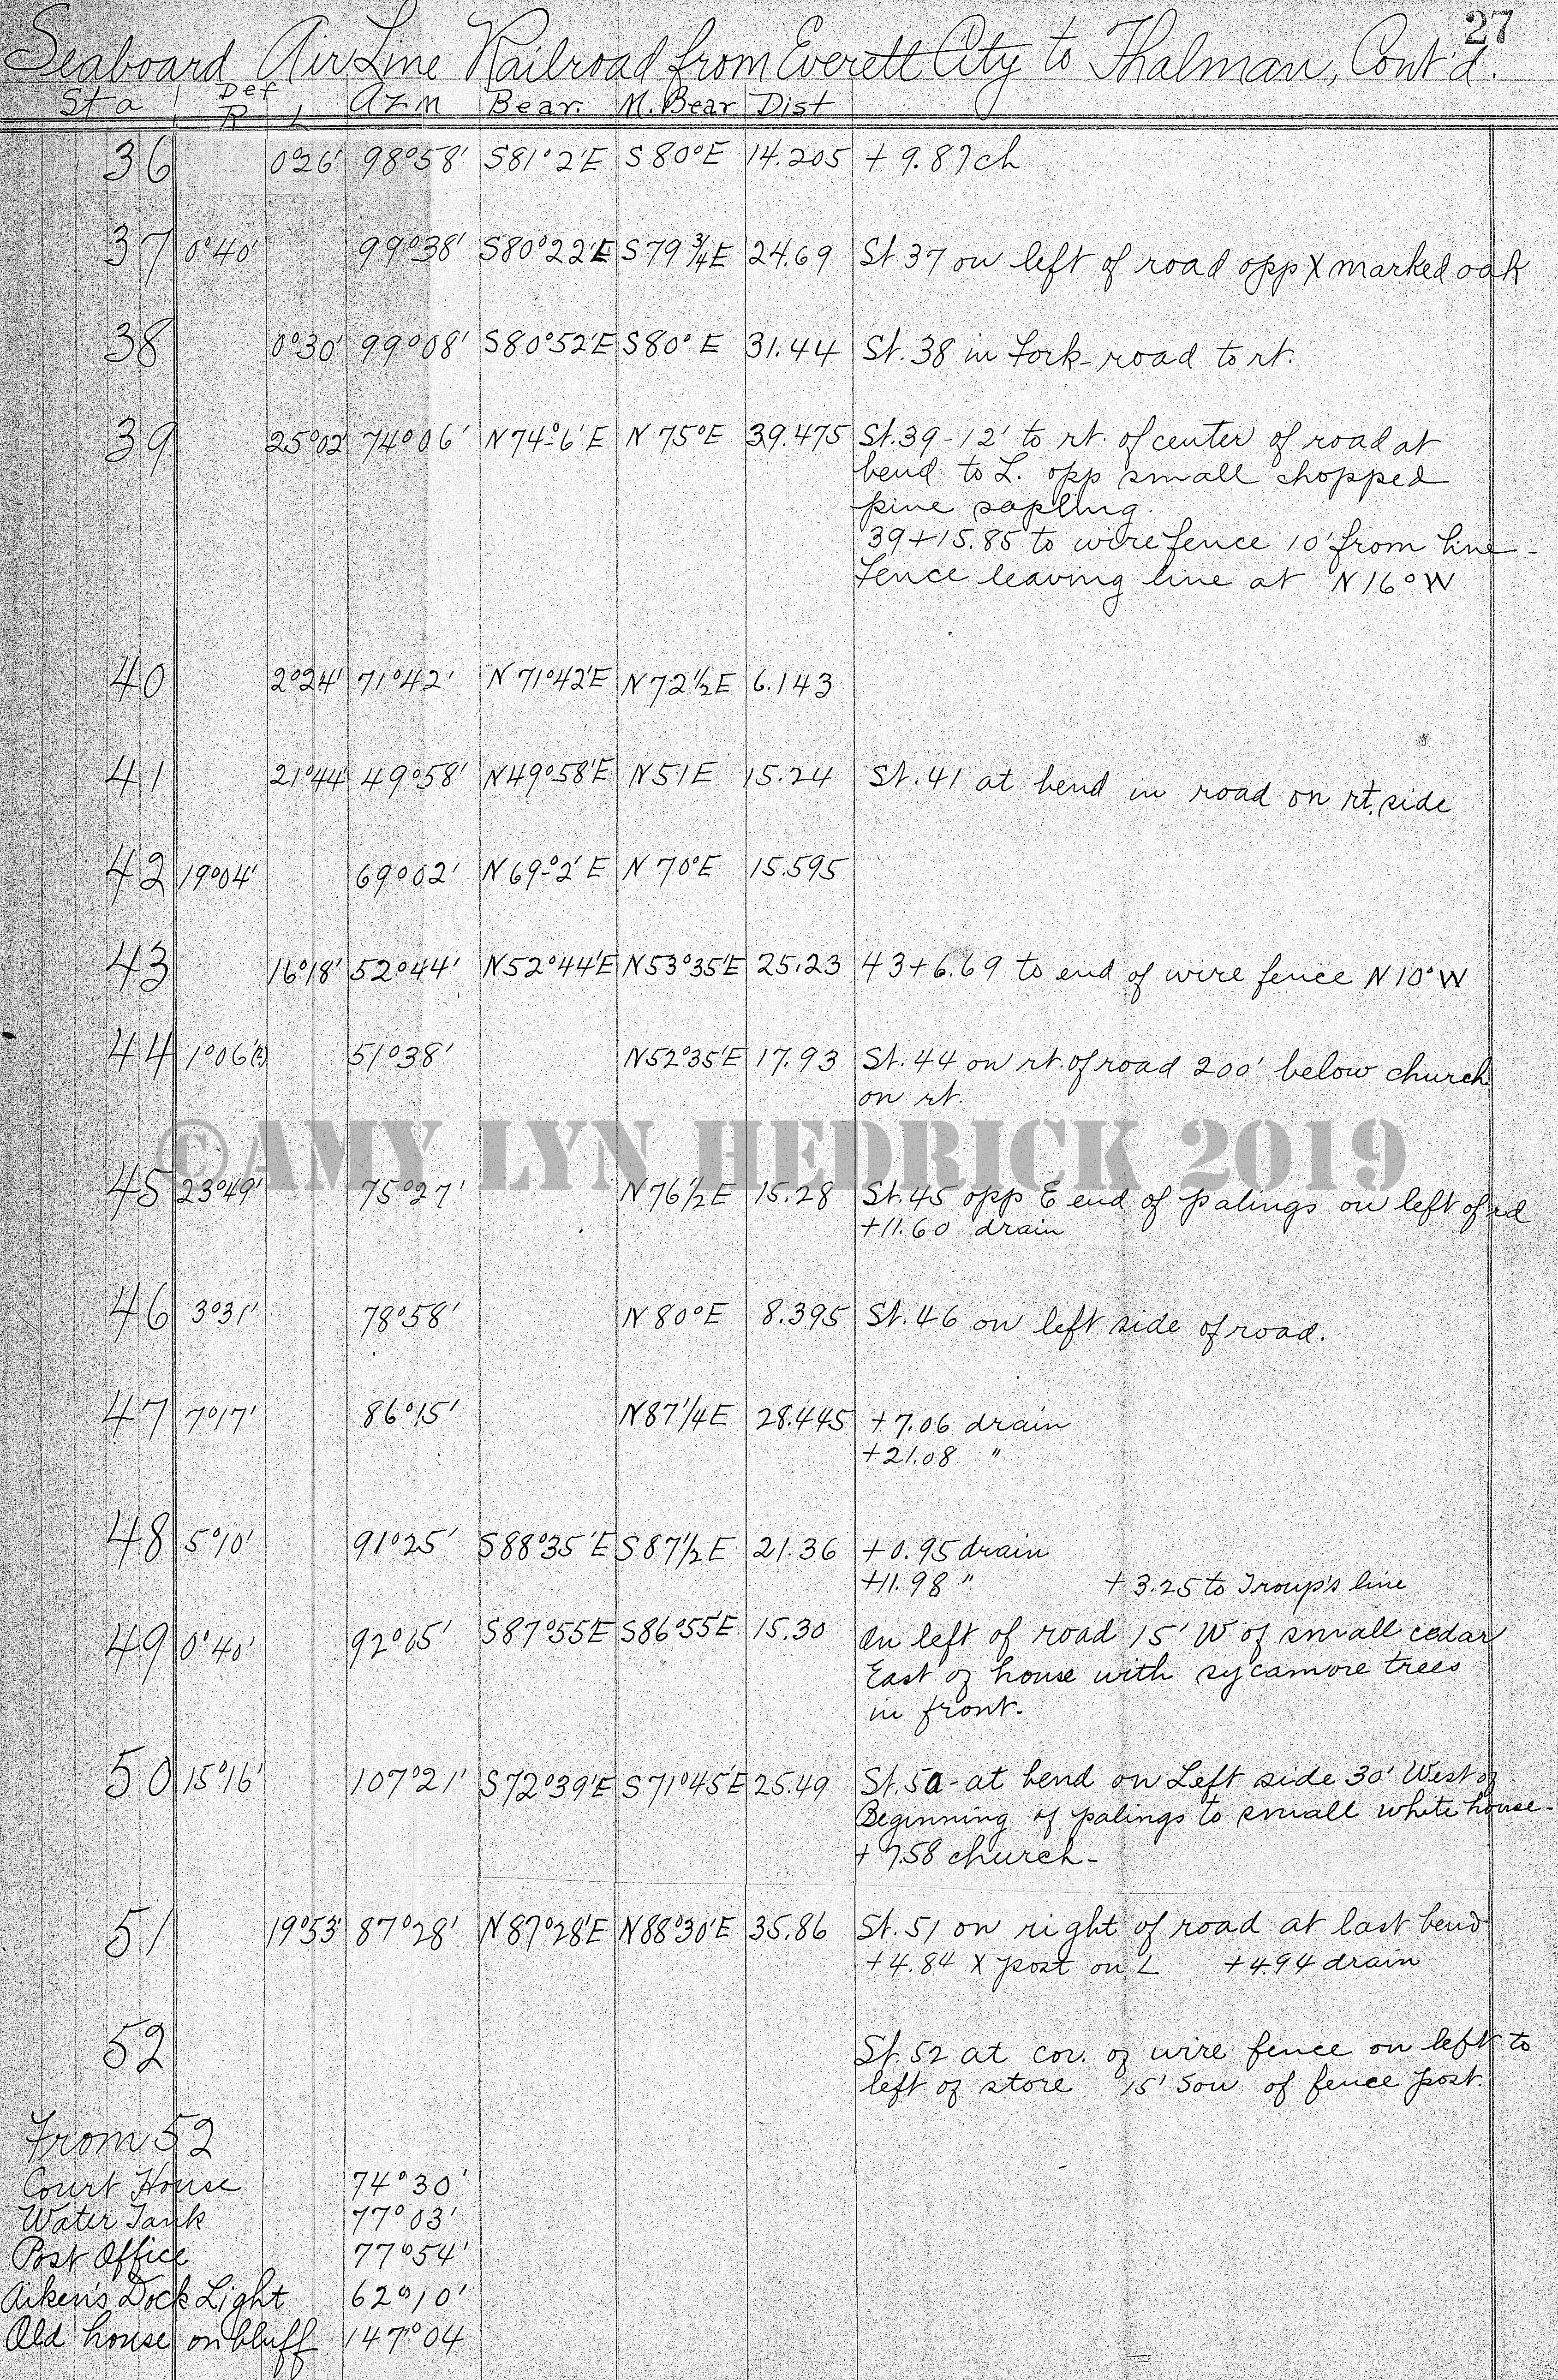 27
Seaboard Air Line Railroad from Everett City to Thalman, Cont'd.
Sta Def R L Azm Bear. M. Bear Dist
36 0°26' 98°58' S81°2'E S80°E 14.205 + 9.87ch
37 0°40' 99°38' S80°22'E S79 3/4E 24.69 St. 37 on left of road opp X marked oak
38 0°30' 99°08' S80°52'E S80°E 31.44 St. 38 in Fork - road to rt.
39 25°02' 74°06' N74°6'E N75°E 39.475 St. 39 - 12' to rt. of center of road at
bend to L. opp small chopped
pine sapling.
39+15.85 to wire fence 10' from line -
Fence leaving line at N16°W
40 2°24' 71°42' N71°42'E N72 1/2E 6.143
41 21°44' 49°58' N49°58'E N51E 15.24 St. 41 at bend in road on rt. side
42 19°04' 69°02' N69°2'E N70°E 15.595
43 16°18' 52°44' N52°44'E N53°35'E 25.23 43+6.69 to end of wire fence N10°W
44 1°06' 51°38' N52°35'E 17.93 St. 44 on rt. of road 200' below church
on rt.
©AMY LYN HEDRICK 2019
45 23°49' 75°27' N76 1/2E 15.28 St. 45 opp E end of palings on left of rd
+11.60 drain
46 3°31' 78°58' N80°E 8.395 St. 46 on left side of road.
47 7°17' 86°15' N87 1/4E 28.445 +7.06 drain
+21.08 "
48 5°10' 91°25' S88°35'E S87 1/2E 21.36 +0.95 drain
+11.98 " +3.25 to Troup's line
49 0°40' 92°05' S87°55'E S86°55'E 15.30 On left of road 15' W of small cedar
East of house with sycamore trees
in front.
50 15°16' 107°21' S72°39'E S71°45'E 25.49 St. 50 - at bend on Left side 30' West of
Beginning of palings to small white house -
+7.58 church -
51 19°53' 87°28' N87°28'E N88°30'E 35.86 St. 51 on right of road at last bend
+4.84 X post on L +4.94 drain
52 St. 52 at cor. of wire fence on left to
left of store 15' Sou of fence post.
From 52
Court House 74°30'
Water Tank 77°03'
Post Office 77°54'
Aiken's Dock Light 62°10'
Old house on bluff 147°04